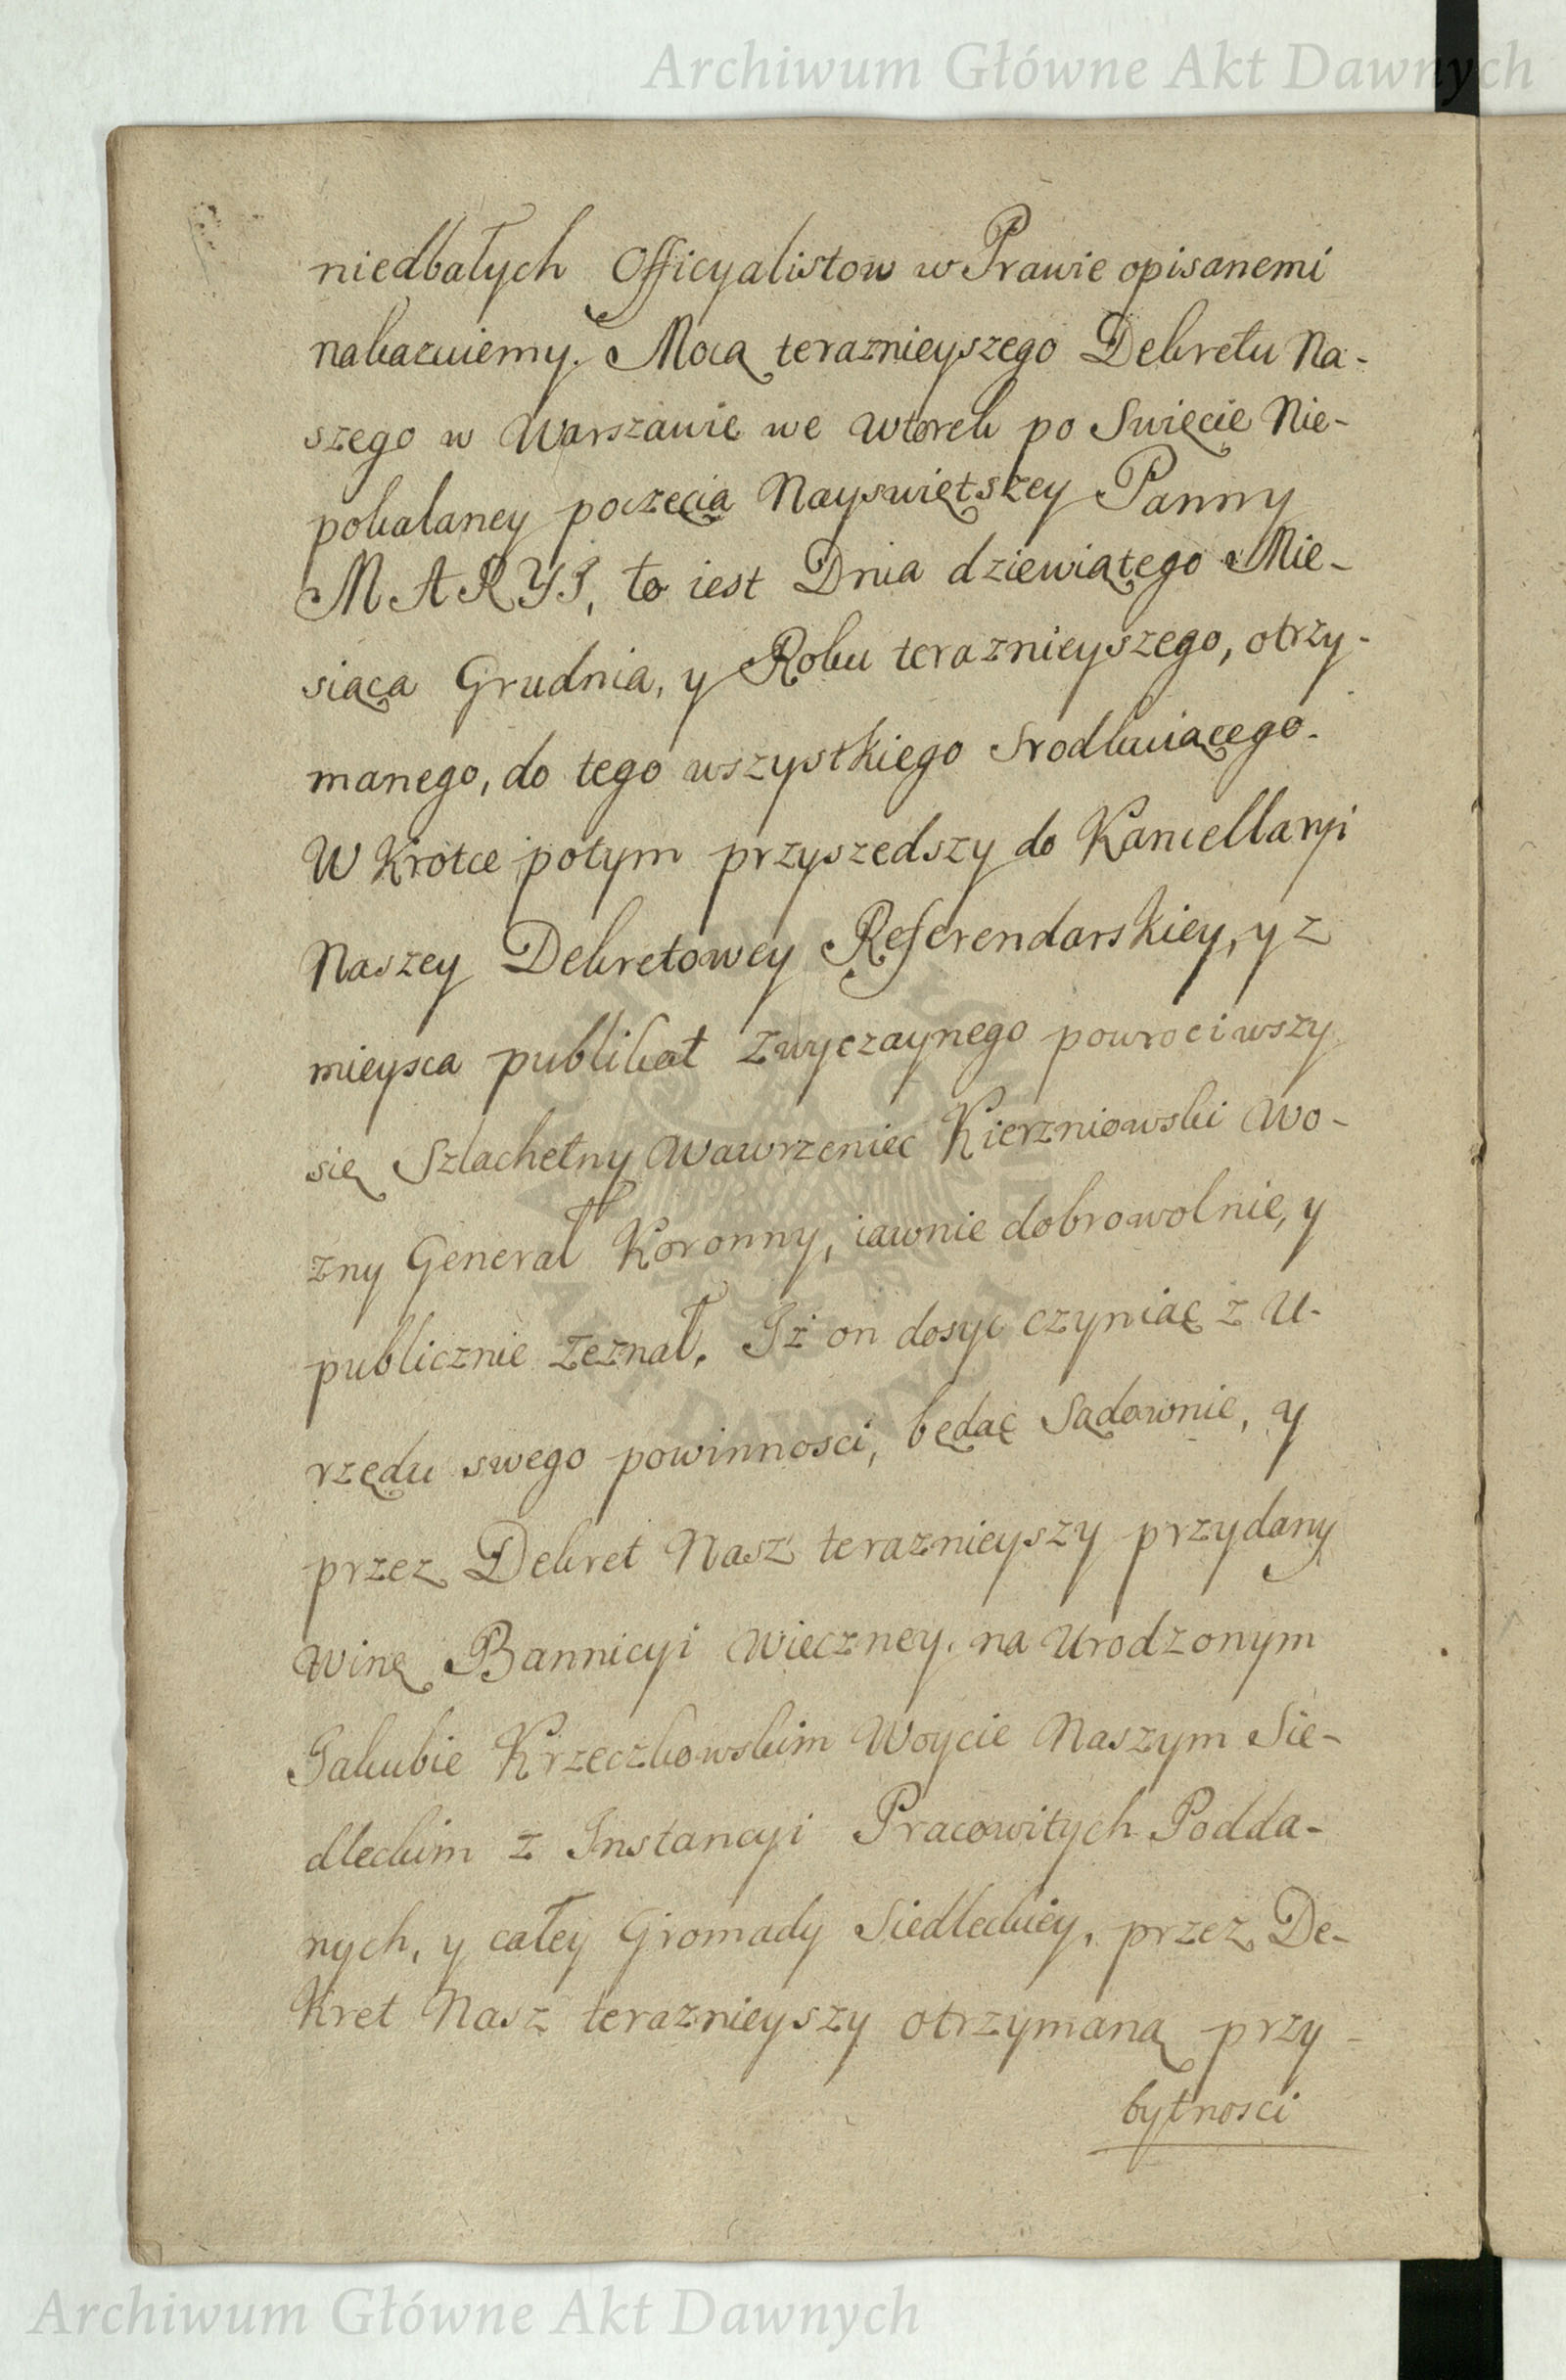 Archiwum Główne Akt Dawnych
niedbałych Officyalistow w Prawie opisanemi
nakazuiemy. Mocą teraznieyszego Dekretu Na-
szego w Warszawie we Wtorek po Swięcie Nie-
pokalaney poczęcia Nayswiętszey Panny
MARYI, to iest Dnia dziewiątego Mie-
siąca Grudnia, y Roku teraznieyszego, otrzy-
manego, do tego wszystkiego srodkuiącego.
W Krotce potym przyszedszy do Kancellaryi
Naszey Dekretowey Referendarskiey, y z
mieysca publikat zwyczaynego powrociwszy
się Szlachetny Wawrzeniec Kierzniowski Wo-
zny Generał Koronny, iawnie dobrowolnie, y
publicznie zeznał. Iż on dosyc czyniąc z U-
rzędu swego powinnosci, będąc Sądownie, y
przez Dekret Nasz teraznieyszy przydany
Winę Bannicyi Wieczney, na Urodzonym
Jakubie Krzeczkowskim Woycie Naszym Sie-
dleckim z Instancyi Pracowitych Podda-
nych, y całey Gromady Siedleckiey, przez De-
kret Nasz teraznieyszy otrzymaną przy-
bytnosci
Archiwum Główne Akt Dawnych